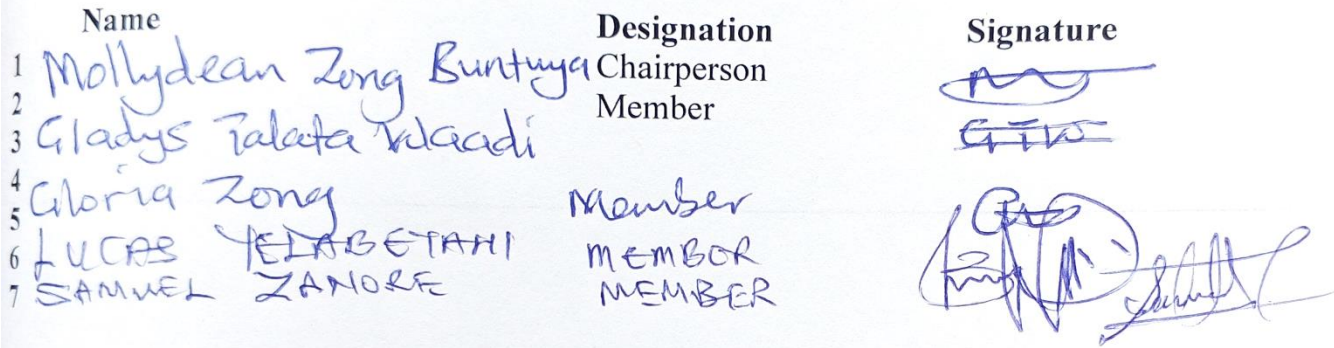 Name Designation Signature
1 Mollydean Zong Buntuya Chairperson
2 Member
3 Gladys Talata Waadi GTW
4
5 Gloria Zong Member
6 LUCAS YELABETANI MEMBOR
7 SAMUEL ZANORE MEMBER